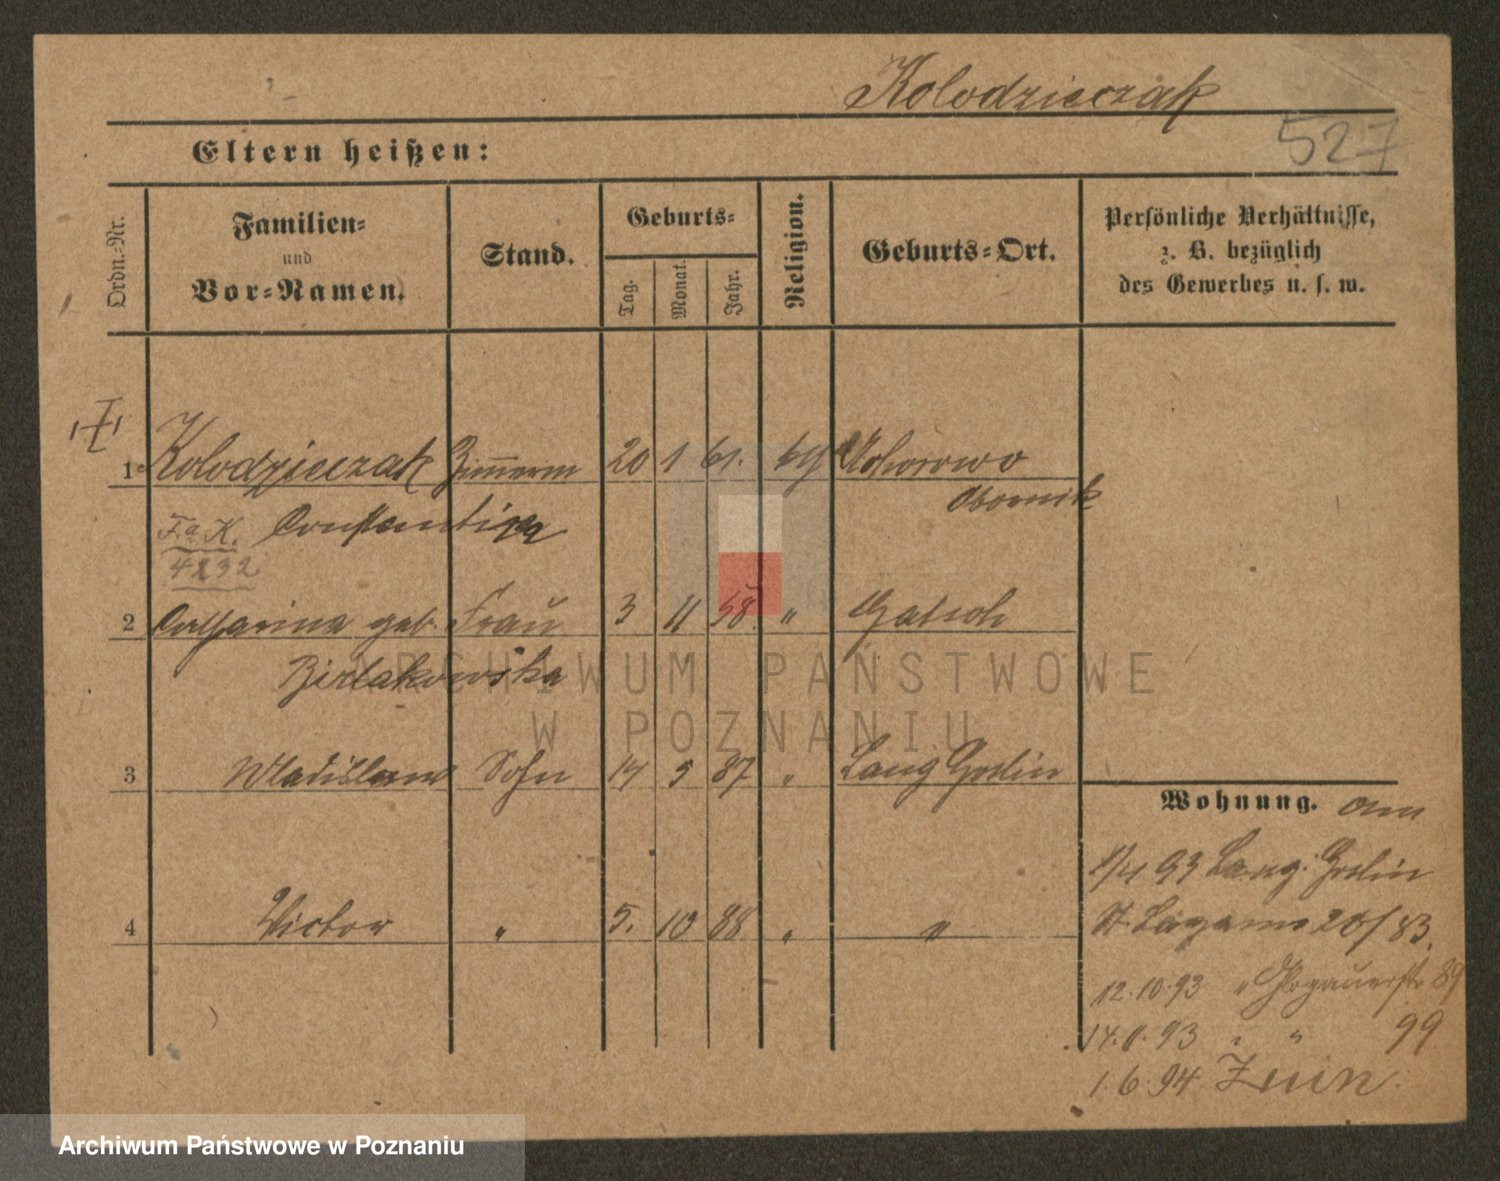 Kolodzieczak
527
Eltern heißen:
Ordn.=Nr.
Familien=
und
Vor=Namen.
Stand.
Geburts=
Tag.
Monat.
Jahr.
Religion.
Geburts=Ort.
Persönliche Verhältnisse,
z. B. bezüglich
des Gewerbes u. s. w.
1 Kolodzieczak Zimmerm 20 1 61. kg
Obornik
F. a. K.
4232
2 Catharina geb. Frau 3 11 58. "
3 Wladislaus Sohn 14 5 87 " Lang Goslin
Wohnung. am
1/4 93 Lang. Goslin
St. Lazarus 20/ 83.
4 Victor " 5. 10 88 " "
12.10.93 " Glogauerstr 89
93 " " 99
1.6.94 Znin
ARCHIWUM PAŃSTWOWE
W POZNANIU
Archiwum Państwowe w Poznaniu